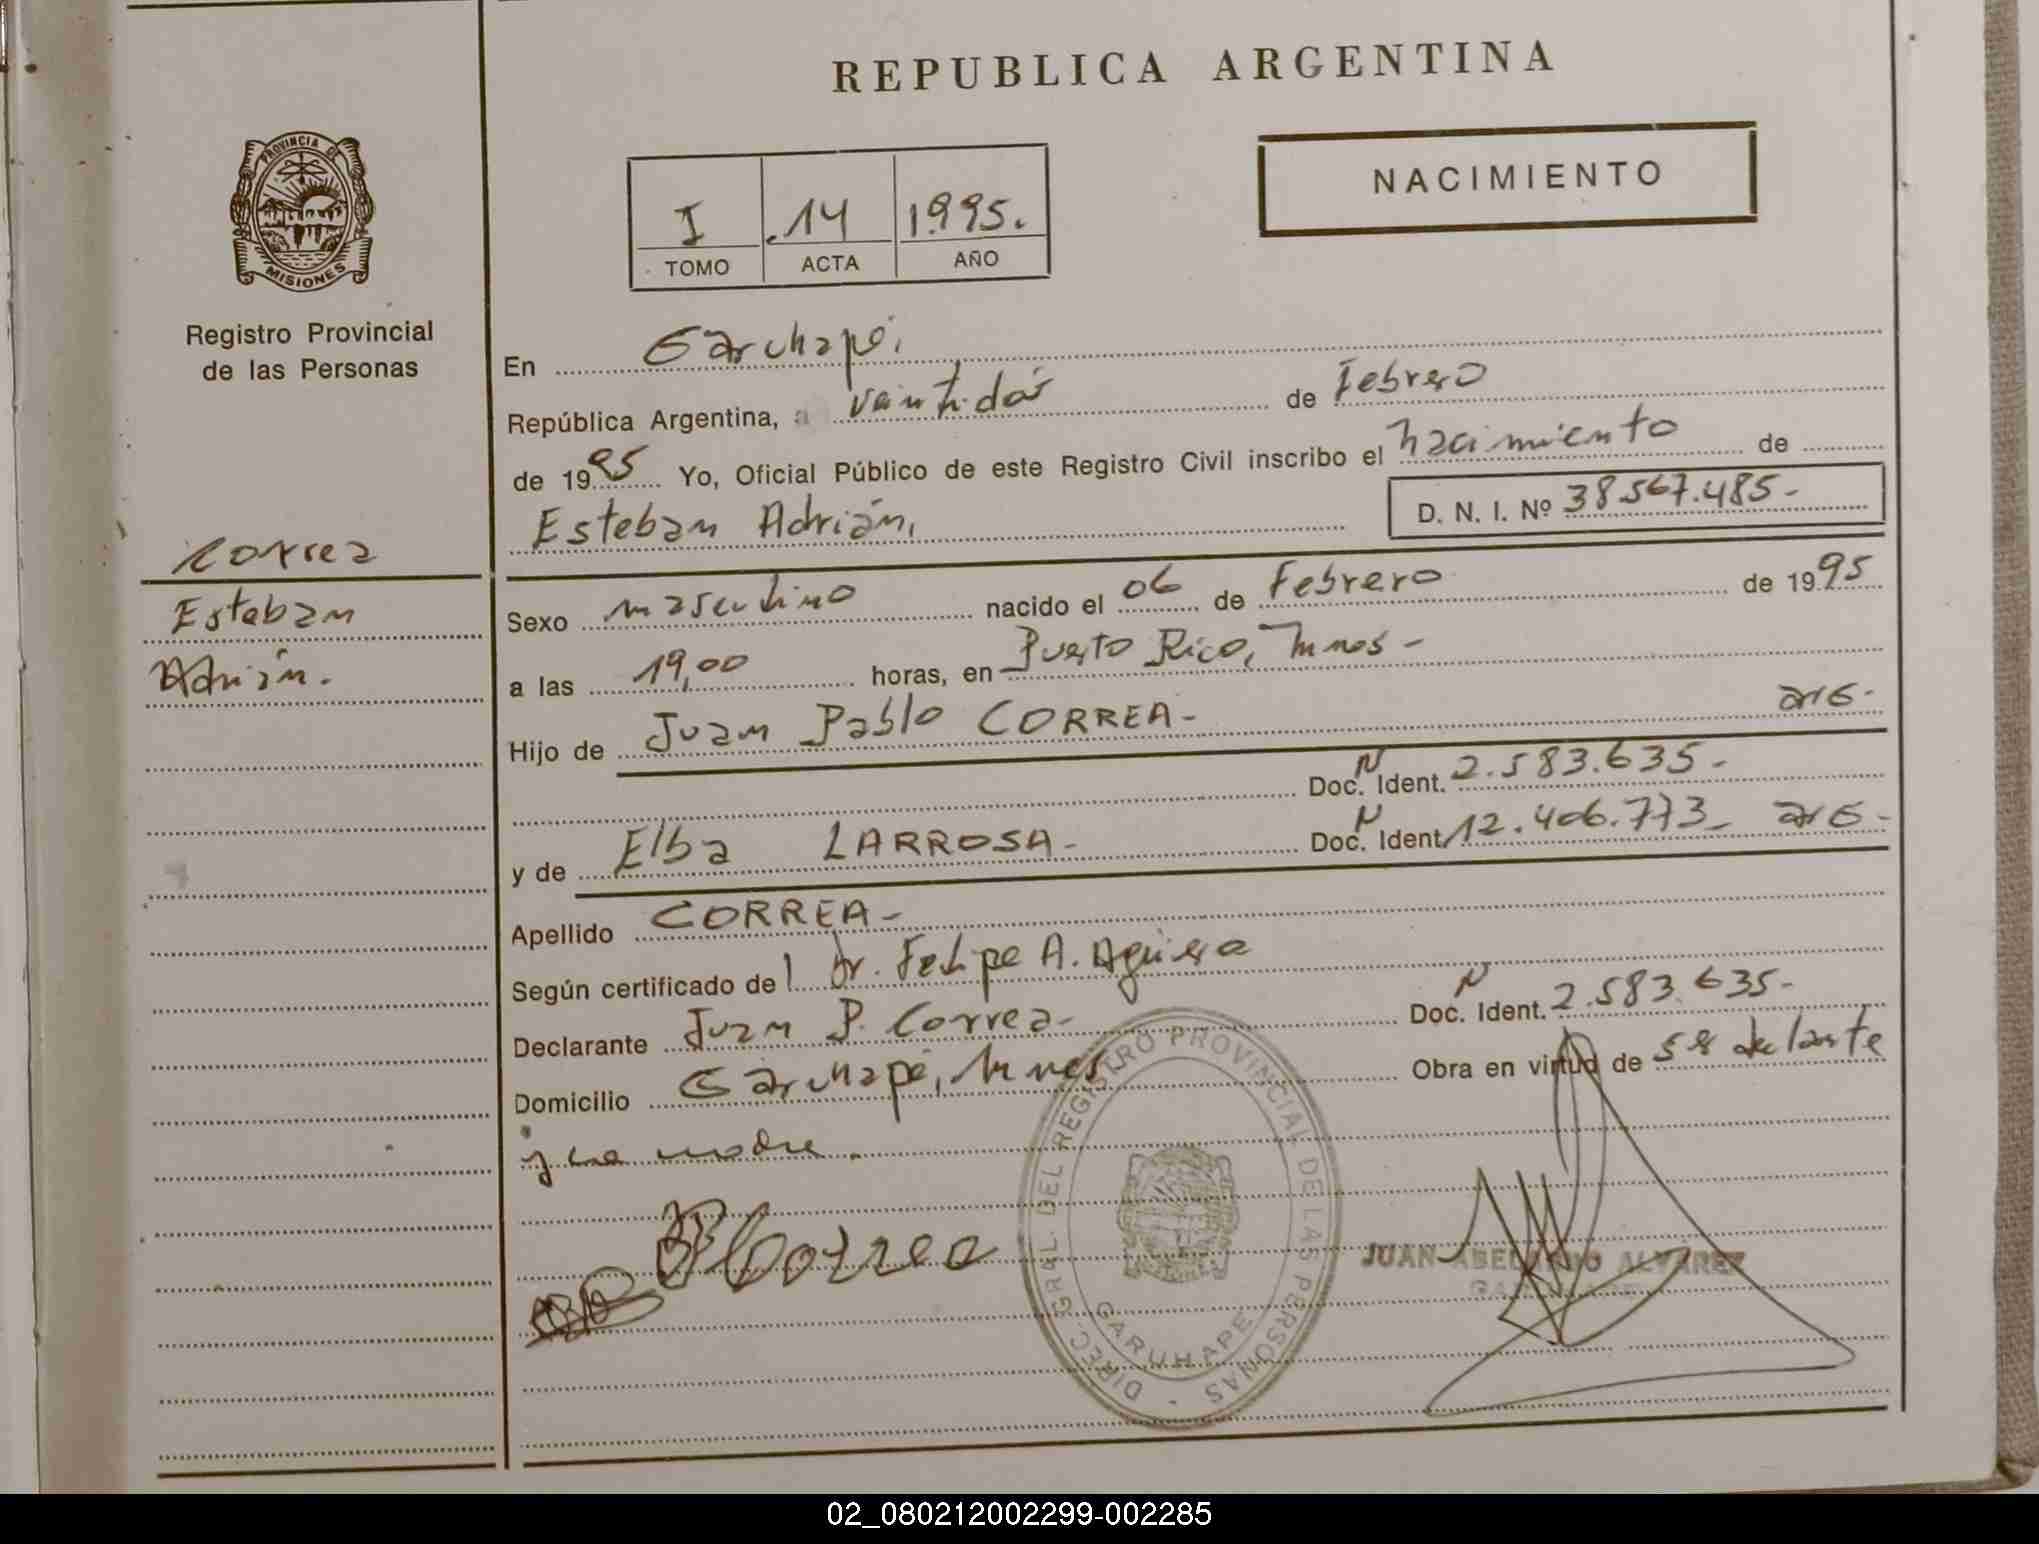 REPUBLICA ARGENTINA
PROVINCIA DE
MISIONES
Registro Provincial
de las Personas
I .14 1.995.
TOMO ACTA AÑO
NACIMIENTO
En Garuhapé,
República Argentina, a veintidós de Febrero
de 1995 Yo, Oficial Público de este Registro Civil inscribo el nacimiento de
Esteban Adrián, D. N. I. Nº 38.567.485-
Correa
Esteban
Adrián.
Sexo masculino nacido el 06 de Febrero de 1995
a las 19,00 horas, en Puerto Rico, Mnes-
Hijo de Juan Pablo CORREA- arg-
Doc. Ident. N 2.583.635-
y de Elba LARROSA- Doc. Ident. N 12.406.773- arg-
Apellido CORREA-
Según certificado del Dr. Felipe A. Aguilera
Declarante Juan P. Correa- Doc. Ident. N 2.583.635-
Domicilio Garuhapé, Mnes Obra en virtud de ser declarante
y la madre.
Correa
DIREC. GRAL. DEL REGISTRO PROVINCIAL DE LAS PERSONAS
GARUHAPE
JUAN ABELARDO ALVAREZ
02_080212002299-002285